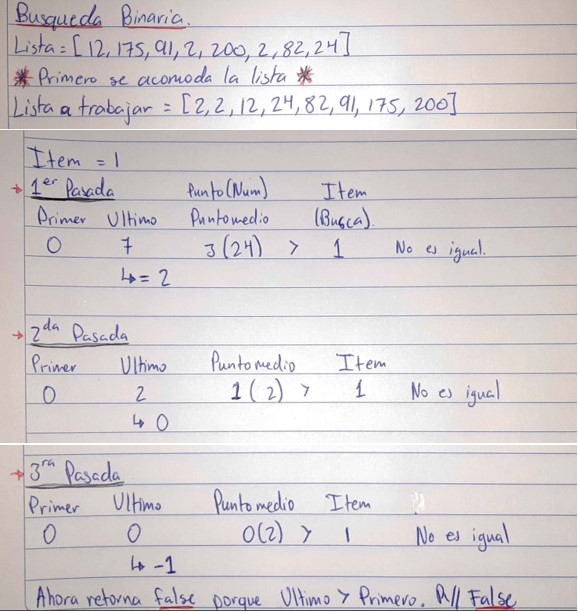 Busqueda Binaria.
Lista = [12, 175, 91, 2, 200, 2, 82, 24]
* Primero se acomoda la lista *
Lista a trabajar = [2, 2, 12, 24, 82, 91, 175, 200]
Item = 1
→ 1er Pasada Punto (Num) Item
Primer Ultimo Puntomedio (Busca).
0 7 3 (24) > 1 No es igual.
↳ = 2
→ 2da Pasada
Primer Ultimo Puntomedio Item
0 2 1 (2) > 1 No es igual
↳ 0
→ 3ra Pasada
Primer Ultimo Puntomedio Item
0 0 0(2) > 1 No es igual
↳ -1
Ahora retorna false porque Ultimo > Primero. R// False